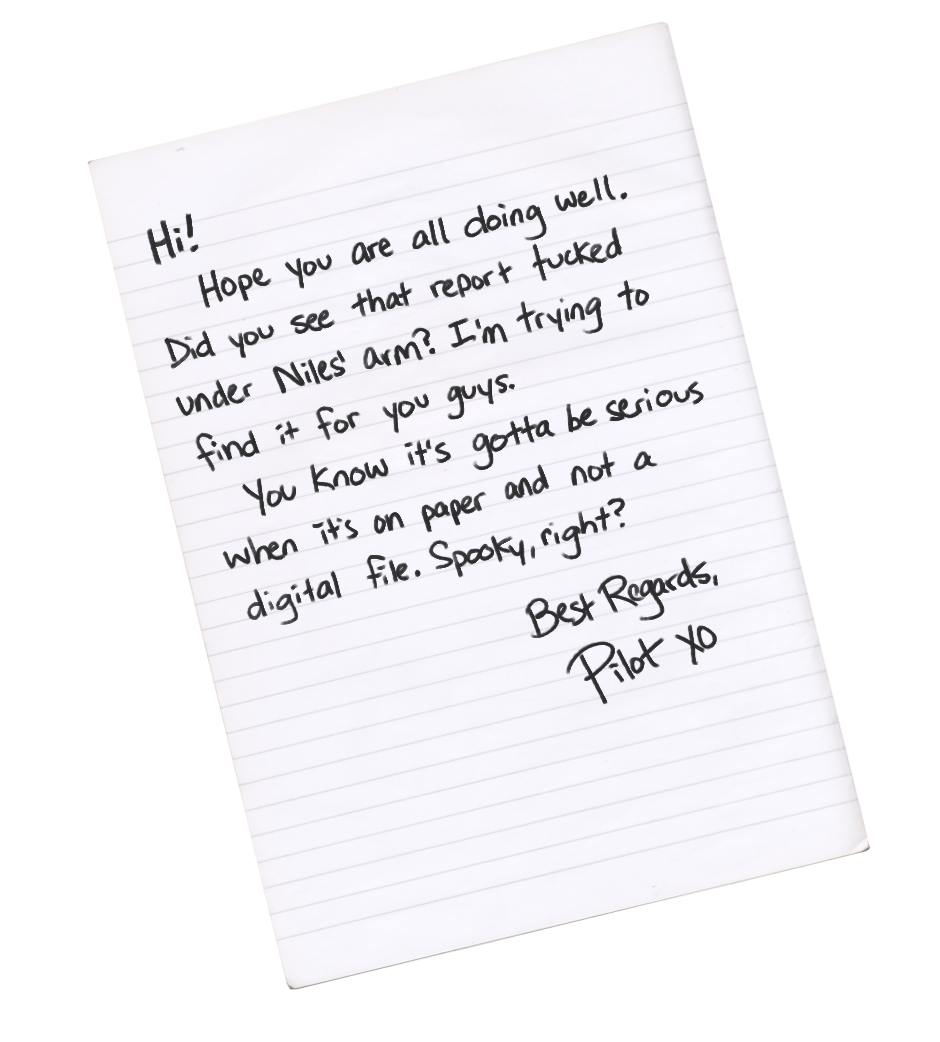 Hi!
Hope you are all doing well.
Did you see that report tucked
under Niles' arm? I'm trying to
find it for you guys.
You know it's gotta be serious
when it's on paper and not a
digital file. Spooky, right?
Best Regards,
Pilot xo